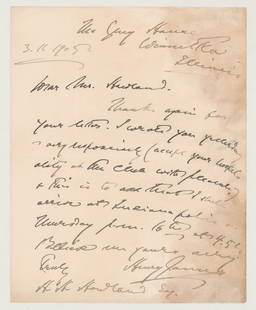 The Grey House
Winnetka
Illinois
3. 11. 1905
Dear Mr. Howland.
Thanks again for
your letter. I wrote you yesterday
accepting your hospit-
ality at the Club with pleasure
& this is to add that I shall
arrive at Indianapolis
Thursday p.m. 16th, at 4.5
Believe me yours
truly
Henry James
Howland Esq.